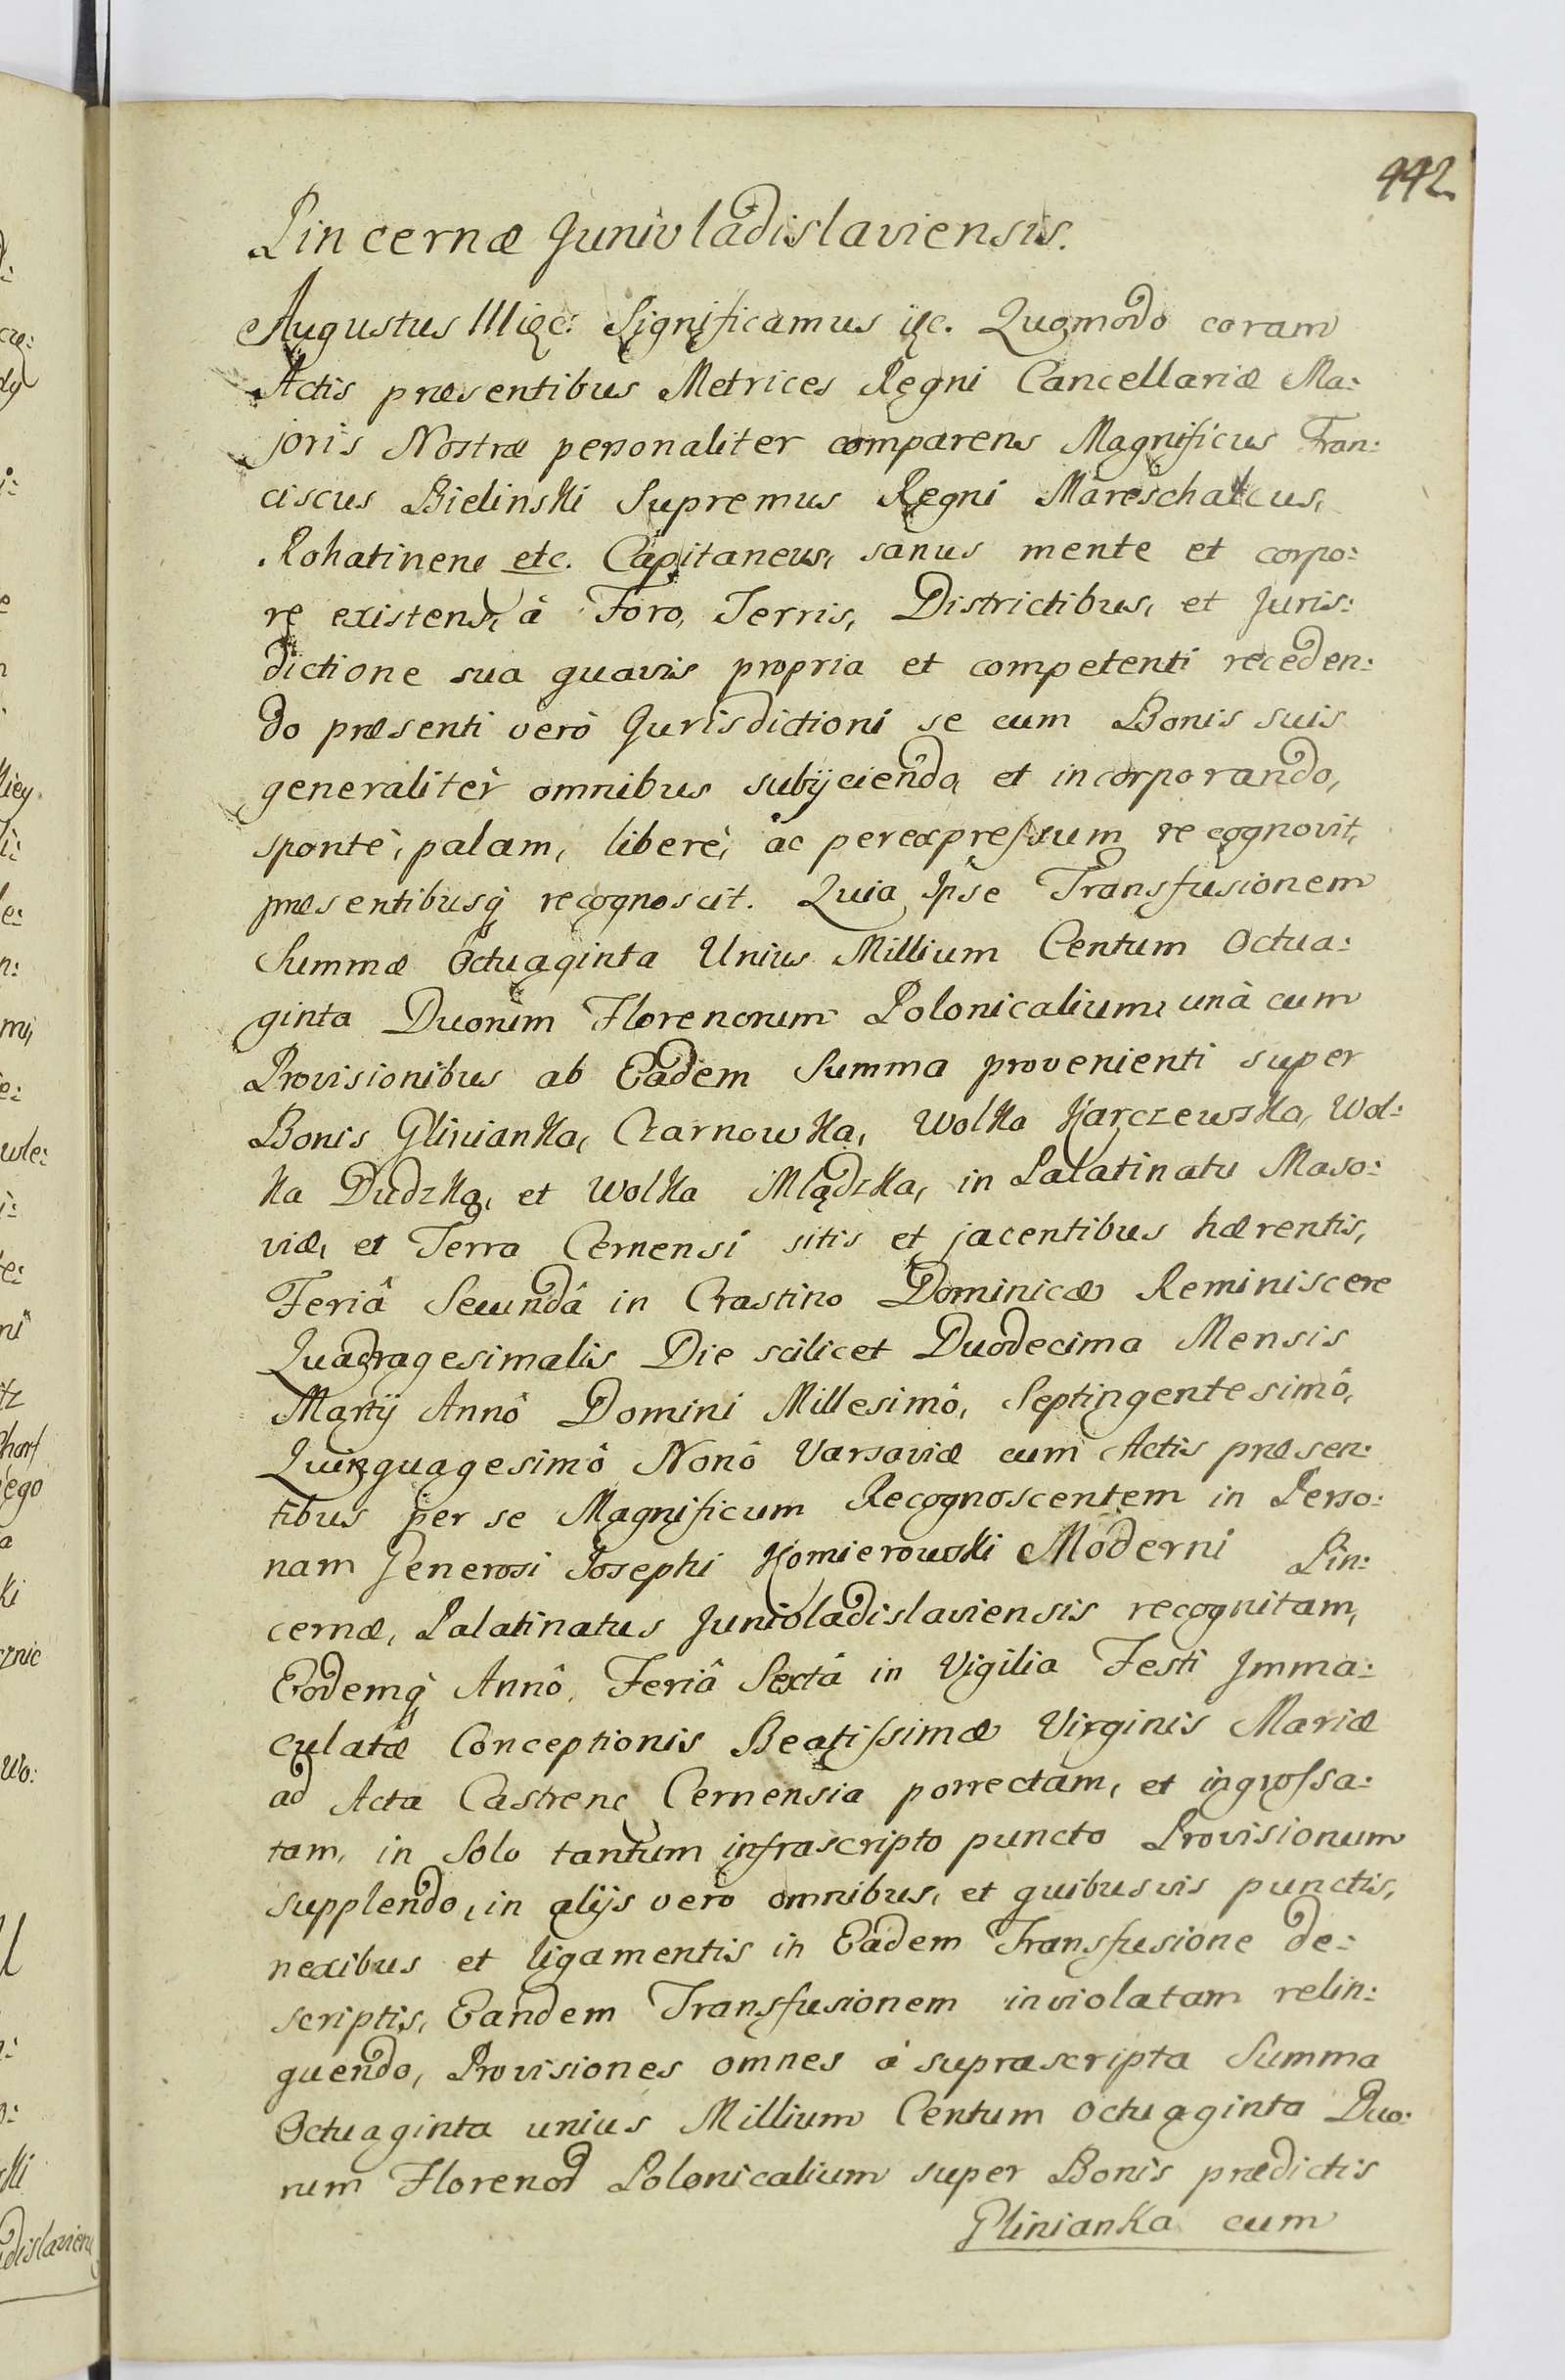 442
Pincernæ Junivladislaviensis.
Augustus III etc: Significamus etc. Quomodo coram
Actis præsentibus Metrices Regni Cancellariæ Ma:
joris Nostræ personaliter comparens Magnificus Fran:
ciscus Bielinski Supremus Regni Mareschalcus,
Rohatinens etc. Capitaneus, sanus mente et corpo:
re existens, à Foro, Terris, Districtibus, et Juris:
dictione sua quavis propria et competenti receden:
do præsenti verò Jurisdictioni se cum Bonis suis
generalitèr omnibus subijciendo, et incorporando,
spontè, palam, liberè, ac per expressum recognovit,
præsentibusq recognoscit. Quia Ipse Transfusionem
Summæ Octuaginta Unius Millium Centum Octua:
ginta Duorum Florenorum Polonicalium, unà cum
Provisionibus ab Eadem Summa provenienti super
Bonis Glinianka, Czarnowka, Wolka Karczewska, Wol:
ka Dudzka, et Wolka Mlądzka, in Palatinatu Maso:
viæ, et Terra Cernensi sitis et jacentibus hærentis,
Feriâ Secundâ in Crastino Dominicæ Reminiscere
Quadragesimalis Die scilicet Duodecima Mensis
Martij Annô Domini Millesimô, Septingentesimô,
Quinquagesimô Nonô Varsaviæ cum Actis præsen:
tibus per se Magnificum Recognoscentem in Perso:
nam Generosi Josephi Komierowski Moderni Pin:
cernæ, Palatinatus Junivladislaviensis recognitam,
Eodemq Annô, Feriâ Sextâ in Vigilia Festi Imma:
culatæ Conceptionis Beatissimæ Virginis Mariæ
ad Acta Castrens Cernensia porrectam, et ingrossa:
tam, in Solo tantum infrascripto puncto Provisionum
supplendo, in alijs vero omnibus, et quibusvis punctis,
nexibus et ligamentis in Eadem Transfusione de:
scriptis, Eandem Transfusionem inviolatam relin:
quendo, Provisiones omnes à suprascripta Summa
Octuaginta unius Millium Centum Octuaginta Duo:
rum Florenor Polonicalium super Bonis prædictis
Glinianka cum